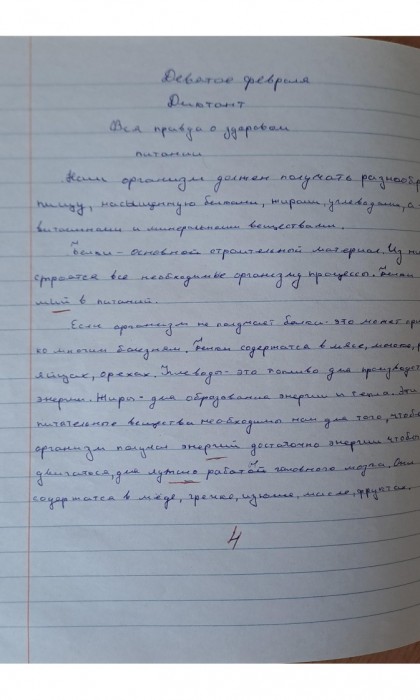 Девятое февраля
Диктант
Вся правда о здоровом
питании
Наш организм должен получать разнооб
пищу, насыщенную белками, жирами, углеводами, а
витаминами и минеральными веществами.
Белки - основной строительный материал. Из
строятся все необходимые организму процессы. Белки
в питании.
Если организм не получает белки - это может
ко многим болезням. Белки содержатся в мясе,
яйцах, орехах. Углеводы - это топливо для производст
энергии. Жиры - для образования энергии и тепла. Эти
питательные вещества необходимы нам для того, чтобы
организм получал энергий достаточно энергии чтобы
двигаться, для работы головного мозга. Они
содержатся в мёде, гречке, изюме, масле, фруктах.
4